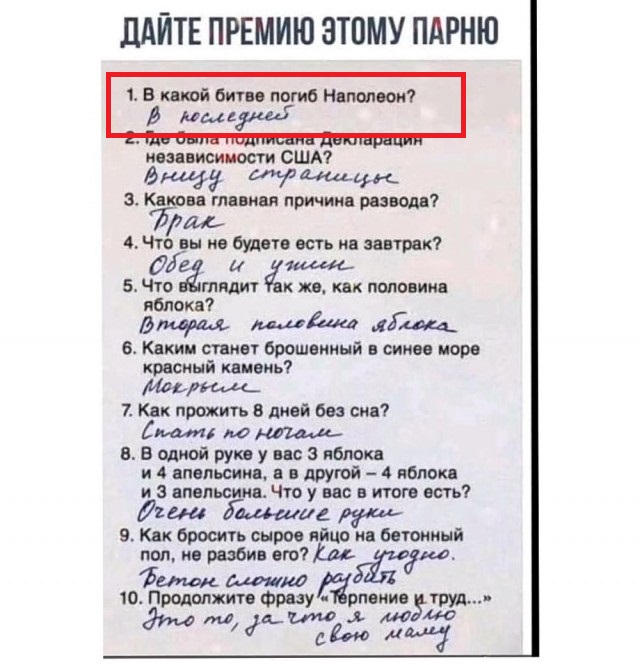 ДАЙТЕ ПРЕМИЮ ЭТОМУ ПАРНЮ
1. В какой битве погиб Наполеон?
В последней
2. Где была подписана Декларация
независимости США?
Внизу страницы
3. Какова главная причина развода?
Брак
4. Что вы не будете есть на завтрак?
Обед и ужин
5. Что выглядит так же, как половина
яблока?
Вторая половина яблока
6. Каким станет брошенный в синее море
красный камень?
Мокрым
7. Как прожить 8 дней без сна?
Спать по ночам
8. В одной руке у вас 3 яблока
и 4 апельсина, а в другой – 4 яблока
и 3 апельсина. Что у вас в итоге есть?
Очень большие руки
9. Как бросить сырое яйцо на бетонный
пол, не разбив его? Как угодно.
Бетон сложно разбить
10. Продолжите фразу «Терпение и труд...»
Это то, за что я люблю
свою маму